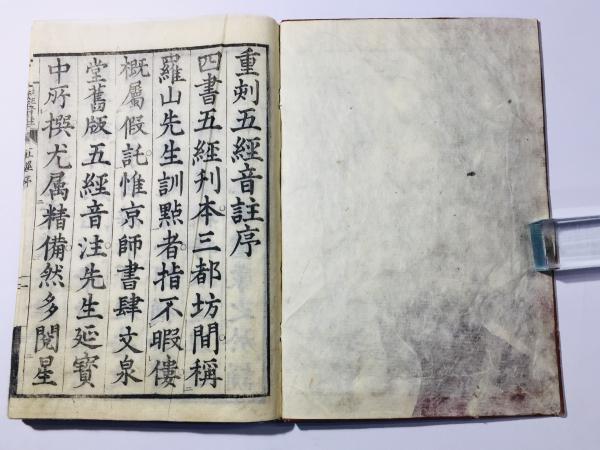 重刻五經音註序
四書五經刋本三都坊間稱
羅山先生訓㸃者指不暇僂
概屬假託惟京師書肆文泉
堂舊版五經音注先生延寶
中所撰尤属精備然多閱星